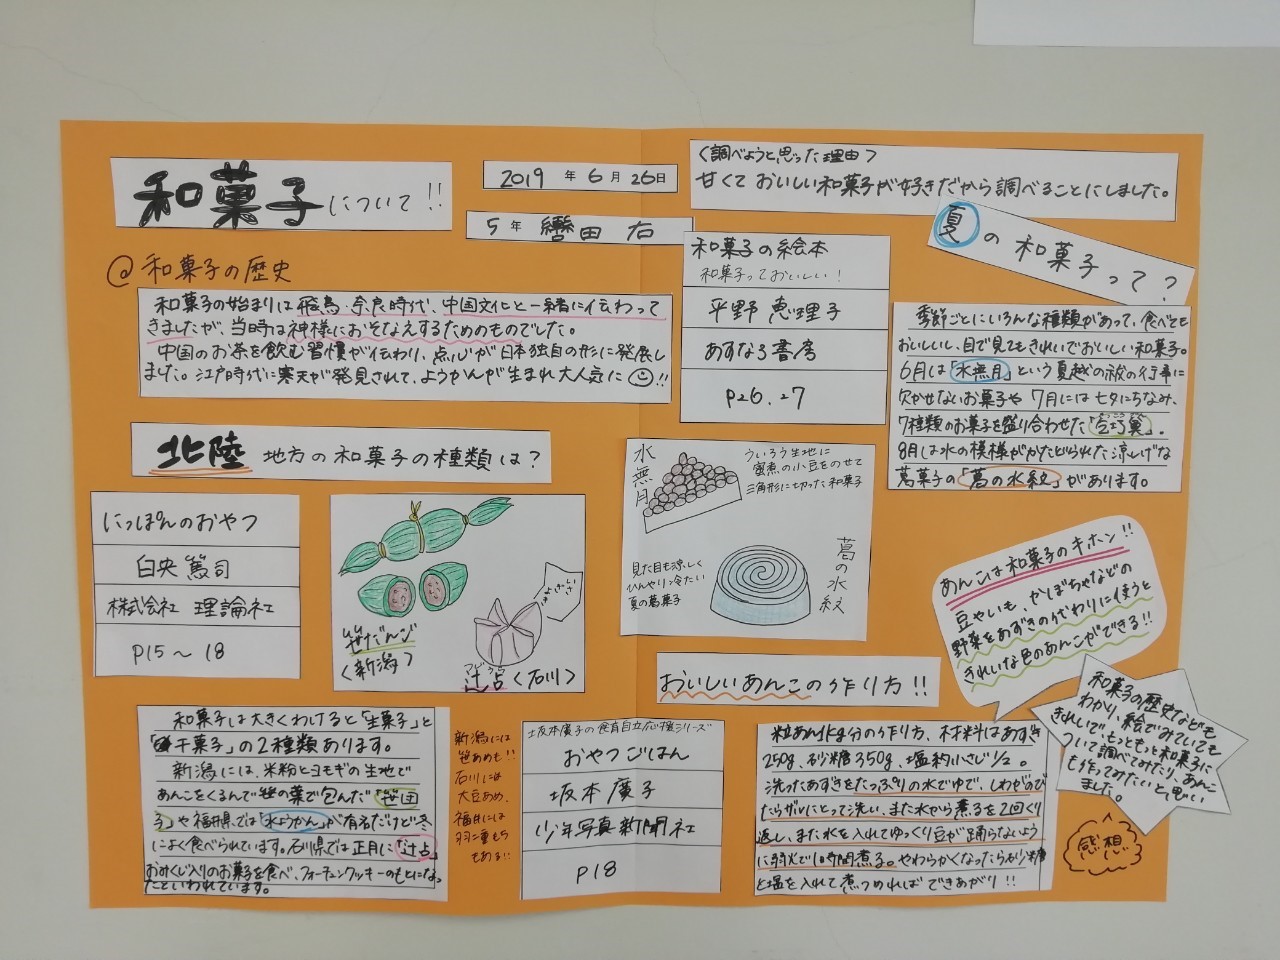 和菓子について!!
2019 年 6 月 26 日
5 年 田 右
<調べようと思った理由>
甘くておいしい和菓子が好きだから調べることにしました。
@和菓子の歴史
和菓子の始まりは飛鳥・奈良時代、中国文化と一緒に伝わって
きましたが、当時は神様におそなえするためのものでした。
中国のお茶を飲む習慣が伝わり、点心が日本独自の形に発展し
ました。江戸時代に寒天が発見されて、ようかんが生まれ大人気に!!
和菓子の絵本
和菓子っておいしい!
平野 恵理子
あすなろ書房
P26.27
夏の和菓子って?
季節ごとにいろんな種類があって、食べても
おいしいし、目で見てもきれいでおいしい和菓子。
6月は「水無月」という夏越の祓の行事に
欠かせないお菓子や 7月には七夕にちなみ、
7種類のお菓子を盛り合わせた「 」。
8月は水の模様がかたどられた涼しげな
葛菓子の「葛の水紋」があります。
北陸地方の和菓子の種類は?
にっぽんのおやつ
白央 篤司
株式会社 理論社
P15～18
笹だんご
<新潟>
辻占<石川>
水無月
ういろう生地に
蜜煮の小豆をのせて
三角形に切った和菓子
見た目も涼しく
ひんやり冷たい
夏の葛菓子
葛の水紋
あんこは和菓子のキホン!!
豆やいも、かぼちゃなどの
野菜をあずきの代わりに使うと
きれいな色のあんこができる!!
和菓子は大きくわけると「生菓子」と
「干菓子」の2種類あります。
新潟には、米粉とヨモギの生地で
あんこをくるんで笹の葉で包んだ「笹団
子」や福井県では「水ようかん」が有名だけど冬
によく食べられています。石川県では正月に「辻占」
おみくじ入りのお菓子を食べ、フォーチュンクッキーのもとになっ
たといわれています。
新潟には
笹あめも!!
石川には
大豆あめ、
福井には
羽二重もち
もある!!
坂本廣子の食育自立応援シリーズ
おやつごはん
坂本 廣子
少年写真新聞社
P18
おいしいあんこの作り方!!
粒あん作り分の作り方、材料はあずき
250g、砂糖350g、塩約小さじ1/2。
洗ったあずきをたっぷりの水でゆで、しわがのび
たらザルにとって洗い、また水から煮るを2回くり
返し、また水を入れてゆっくり豆が踊らないよう
に弱火で1時間煮る。やわらかくなったら砂糖
と塩を入れて煮つめればできあがり!!
和菓子の歴史なども
わかり、絵でみていても
きれいで、もっともっと和菓子に
ついて調べてみたり、あんこ
も作ってみたいと思い
ました。
感想